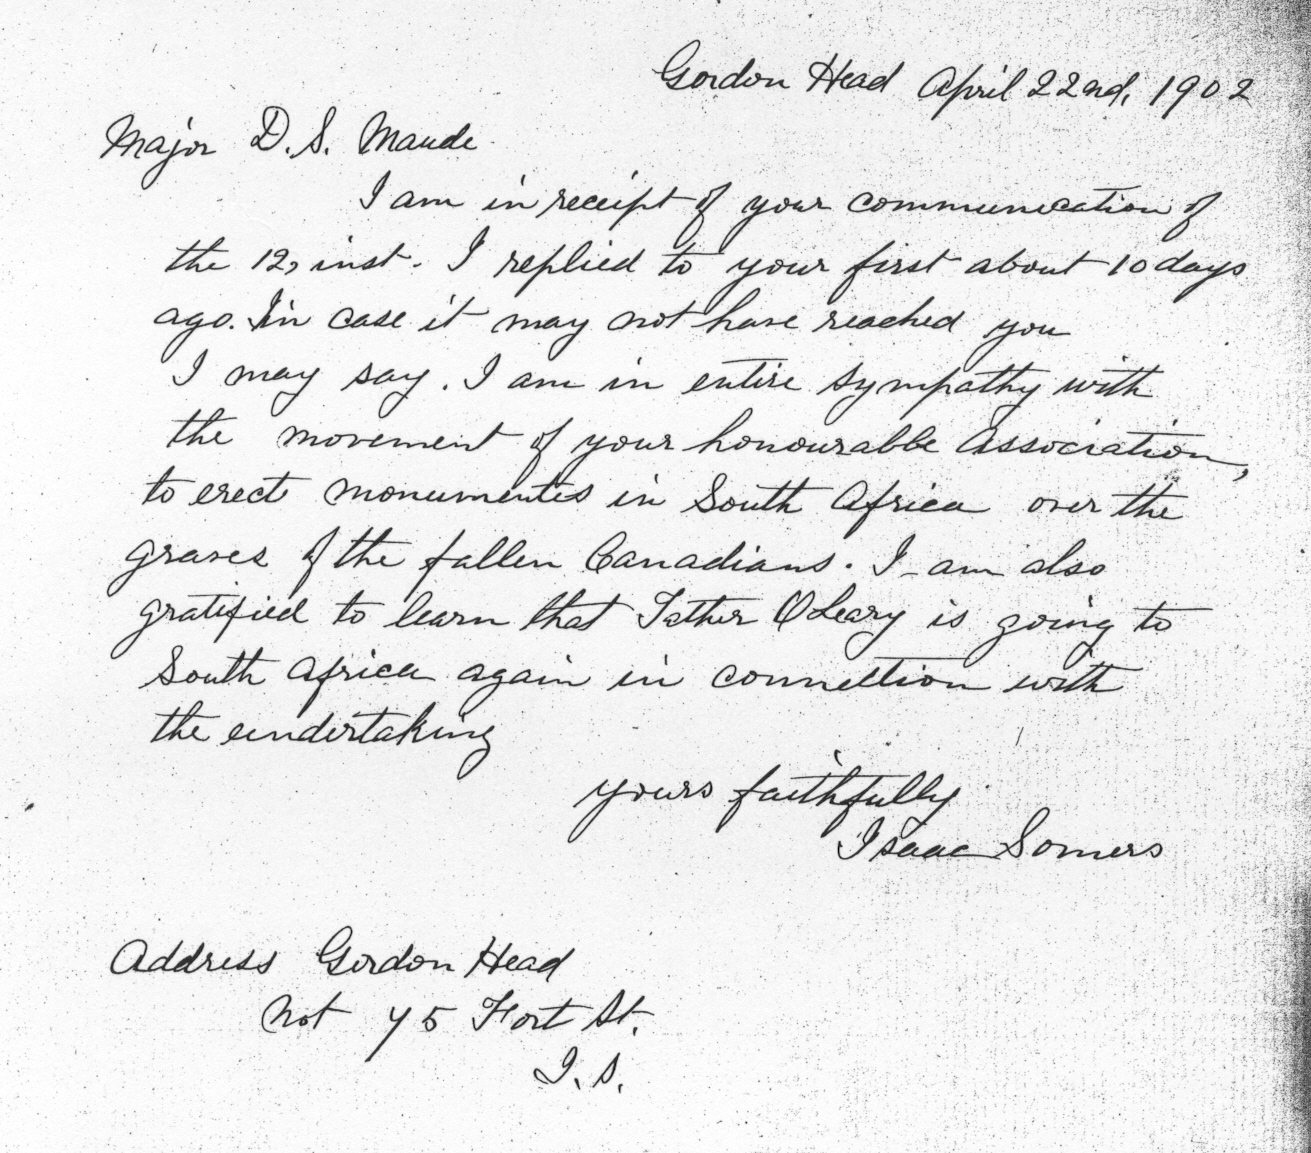 Gordon Head April 22nd, 1902
Major D. S. Maude
I am in receipt of your communication of
the 12, inst. I replied to your first about 10 days
ago. In case it may not have reached you
I may say. I am in entire sympathy with
the movement of your honourable Association,
to erect monuments in South Africa over the
graves of the fallen Canadians. I am also
gratified to learn that Father O'Leary is going to
South Africa again in connection with
the undertaking
yours faithfully
Isaac Somers
Address Gordon Head
not 75 Fort St.
I. S.